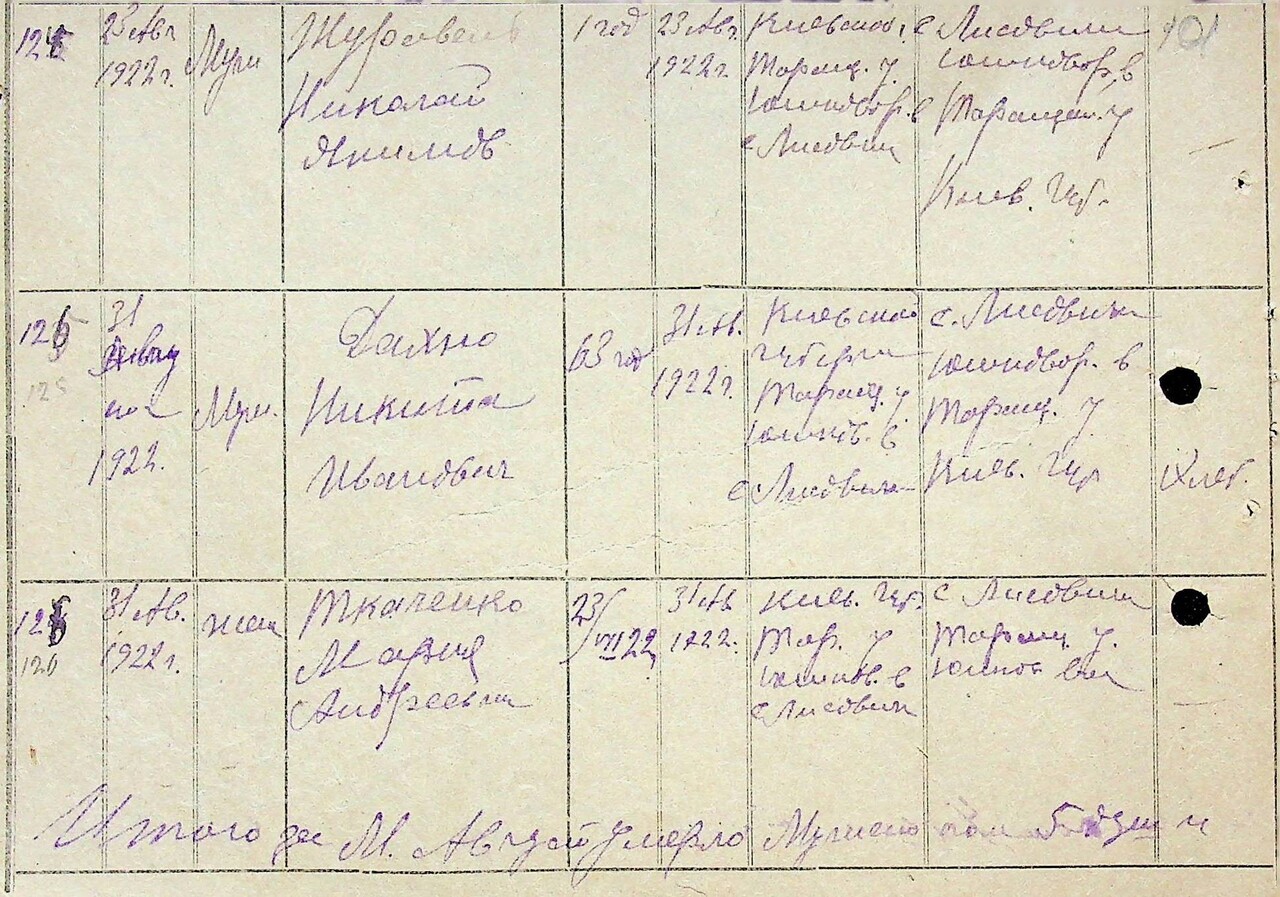 124
23 Авг
1922 г.
Муж
Журавель
Николай
Якимов
1 год
23 Авг.
1922 г.
Киевской г,
Таращ. у
Юшковор. в
с Лисович
с Лисович
Юшковор. в
Таращан. у
Киев. Губ.
101
125
125
31
Авгу
ста
1922.
Муж.
Дахно
Никита
Иванович
63 год
31 Ав.
1922 г.
Киевской
губерн
Таращ. у
Юшков. в
с Лисович
с. Лисович
Юшковор. в
Таращ. у
Киев. Губ
Хлеб.
126
126
31 Ав.
1922 г.
жен
Ткаченко
Мария
Андреевна
23/VII 22
31 Ав
1922.
Киев. Губ.
Тар. у
Юшков. в
с Лисович
с Лисович
Таращ у.
Юшков
Итого за М. Август умерло Мужско пол